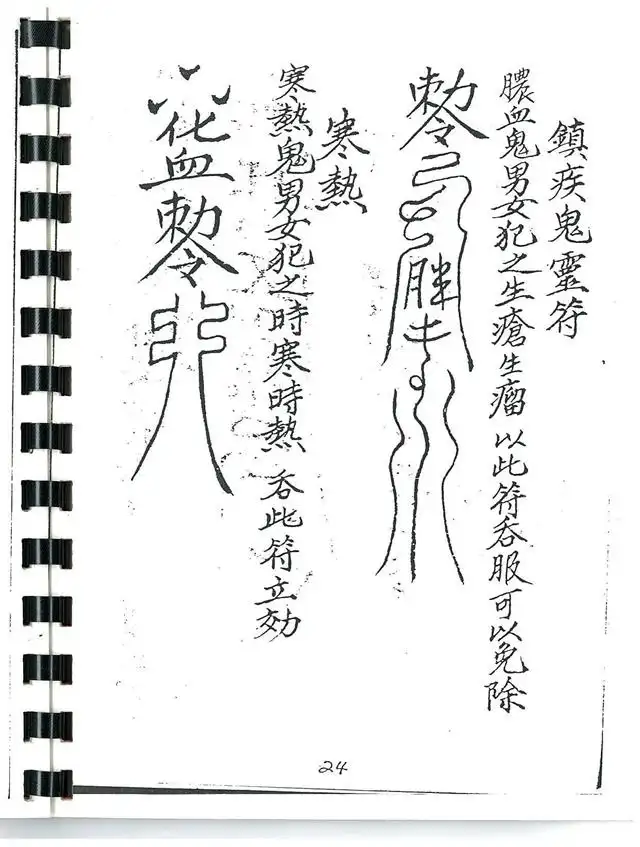 鎮疾鬼靈符
膿血鬼男女犯之生瘡生瘤 以此符吞服可以免除
勅令
胜
寒熱
寒熱鬼男女犯之時寒時熱 吞此符立効
化血勅令
24